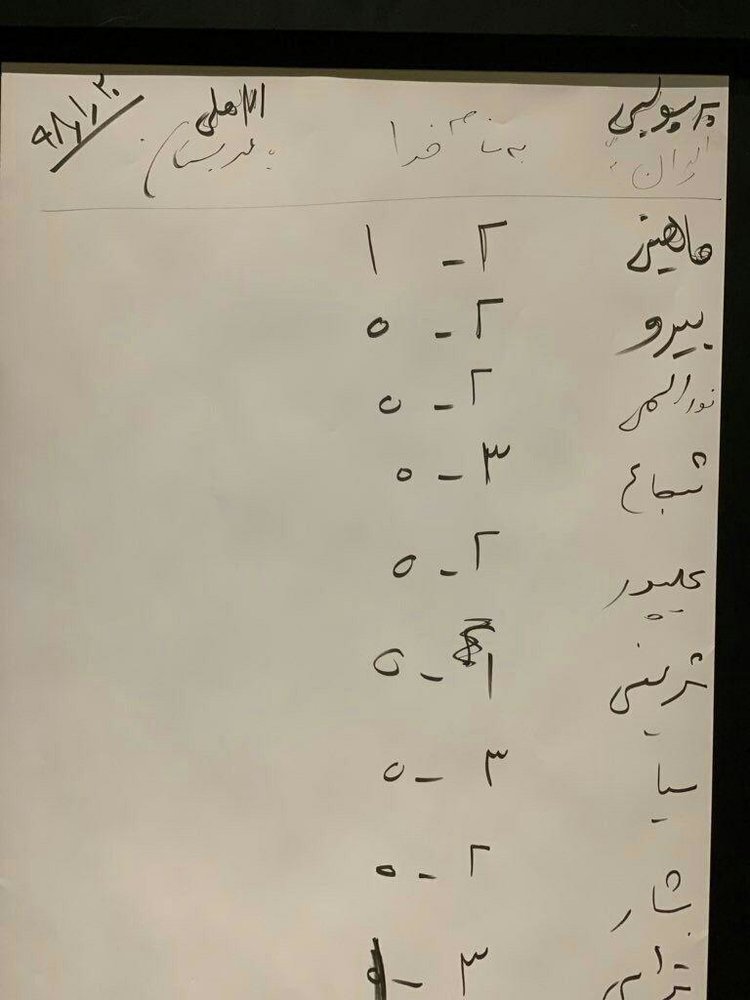 پرسپولیس به نام خدا الاهلی ۹۸/۱/۲۰
ایران عربستان
ماهینی ۲ - ۱
بیرو ۲ - ۰
نورالهی ۲ - ۰
شجاع ۳ - ۰
علیپور ۲ - ۰
شریفی ۱ - ۰
سیا ۳ - ۰
بشار ۲ - ۰
۳ -